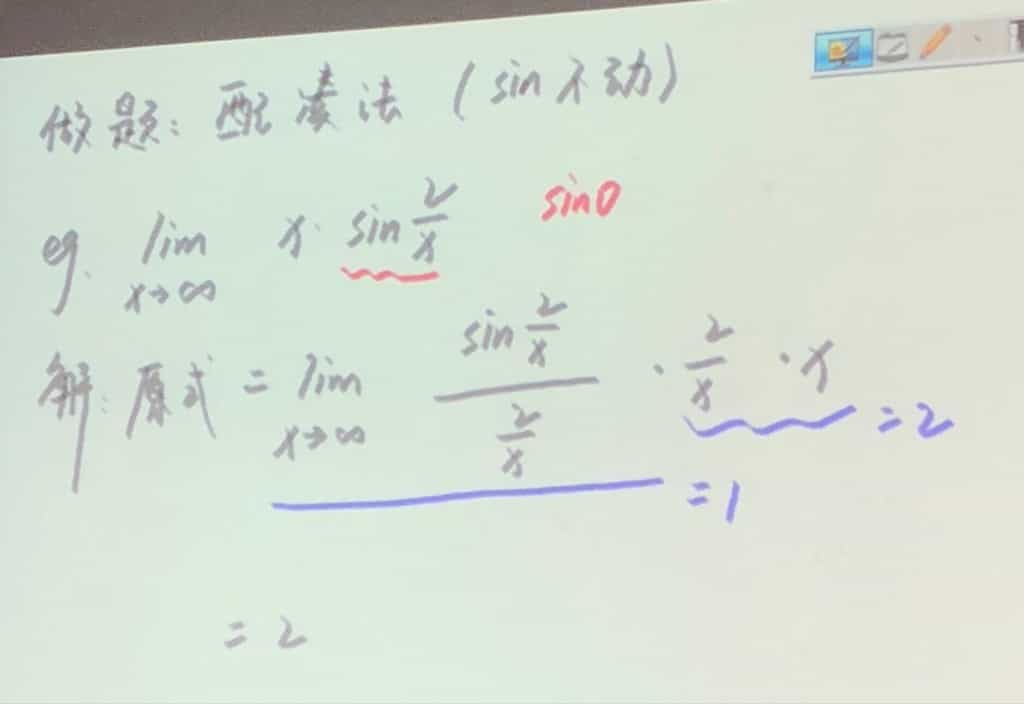 做题: 配凑法 (sin不动)
eg. lim x→∞ x· sin 2/x sin0
解: 原式 = lim x→∞ (sin 2/x)/(2/x) · 2/x · x = 2
= 1
= 2